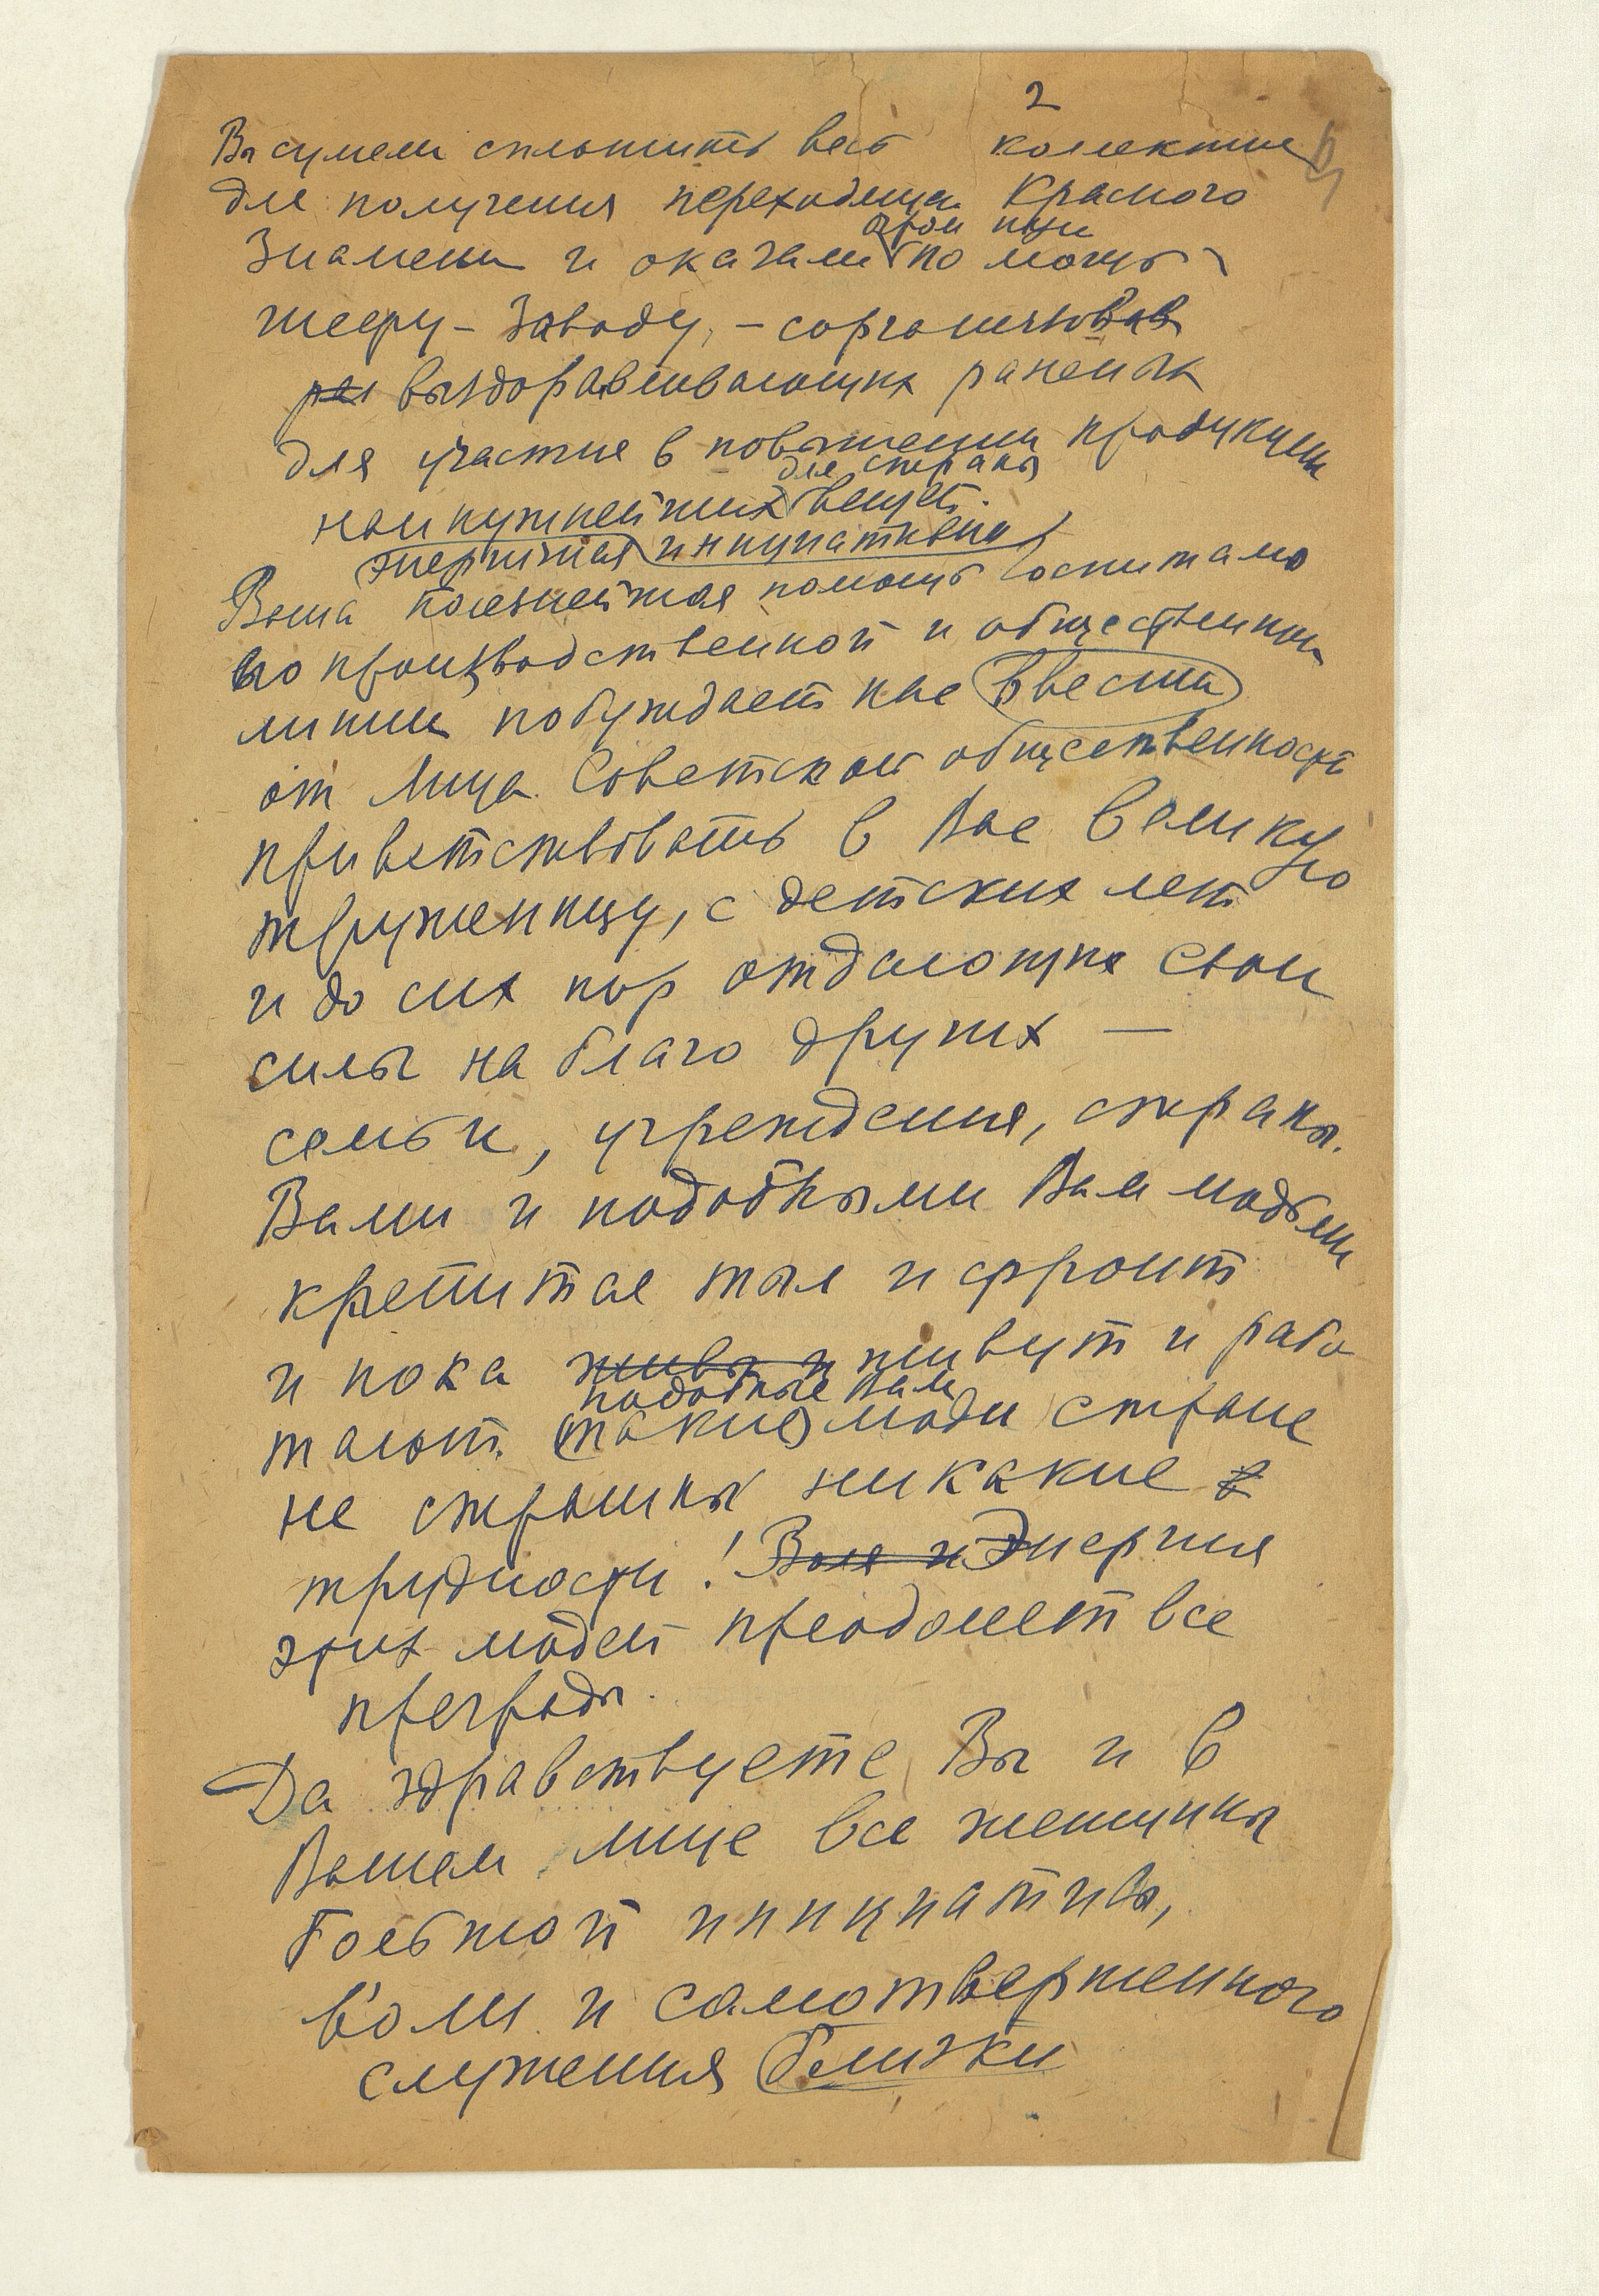 2
Вы сумели сплотить весь коллектив
для получения переходящ. Красного
огром ную
Знамени и оказали помощь
шефу - Заводу, - сорганизовав
выздоравливающих раненых
для участия в повышении продукции
для страны
наинужнейших вещей.
энергичная инициативная
Ваша полезнейшая помощь госпиталю
по производственной и общественной
линии побуждает нас ввести
от лица Советской общественности
приветствовать в Вас великую
труженицу, с детских лет
и до сих пор отдающих свои
силы на благо других —
семьи, учреждения, страны.
Вами и подобными Вам людьми
крепится тыл и фронт
и пока живы и живут и рабо
подобные Вам
тают (такие) люди стране
не страшны никакие
трудности! Воля и Энергия
этих людей преодолеет все
преграды.
Да здравствуете Вы и в
Вашем лице все женщины
большой инициативы,
воли и самотверженного
служения близки